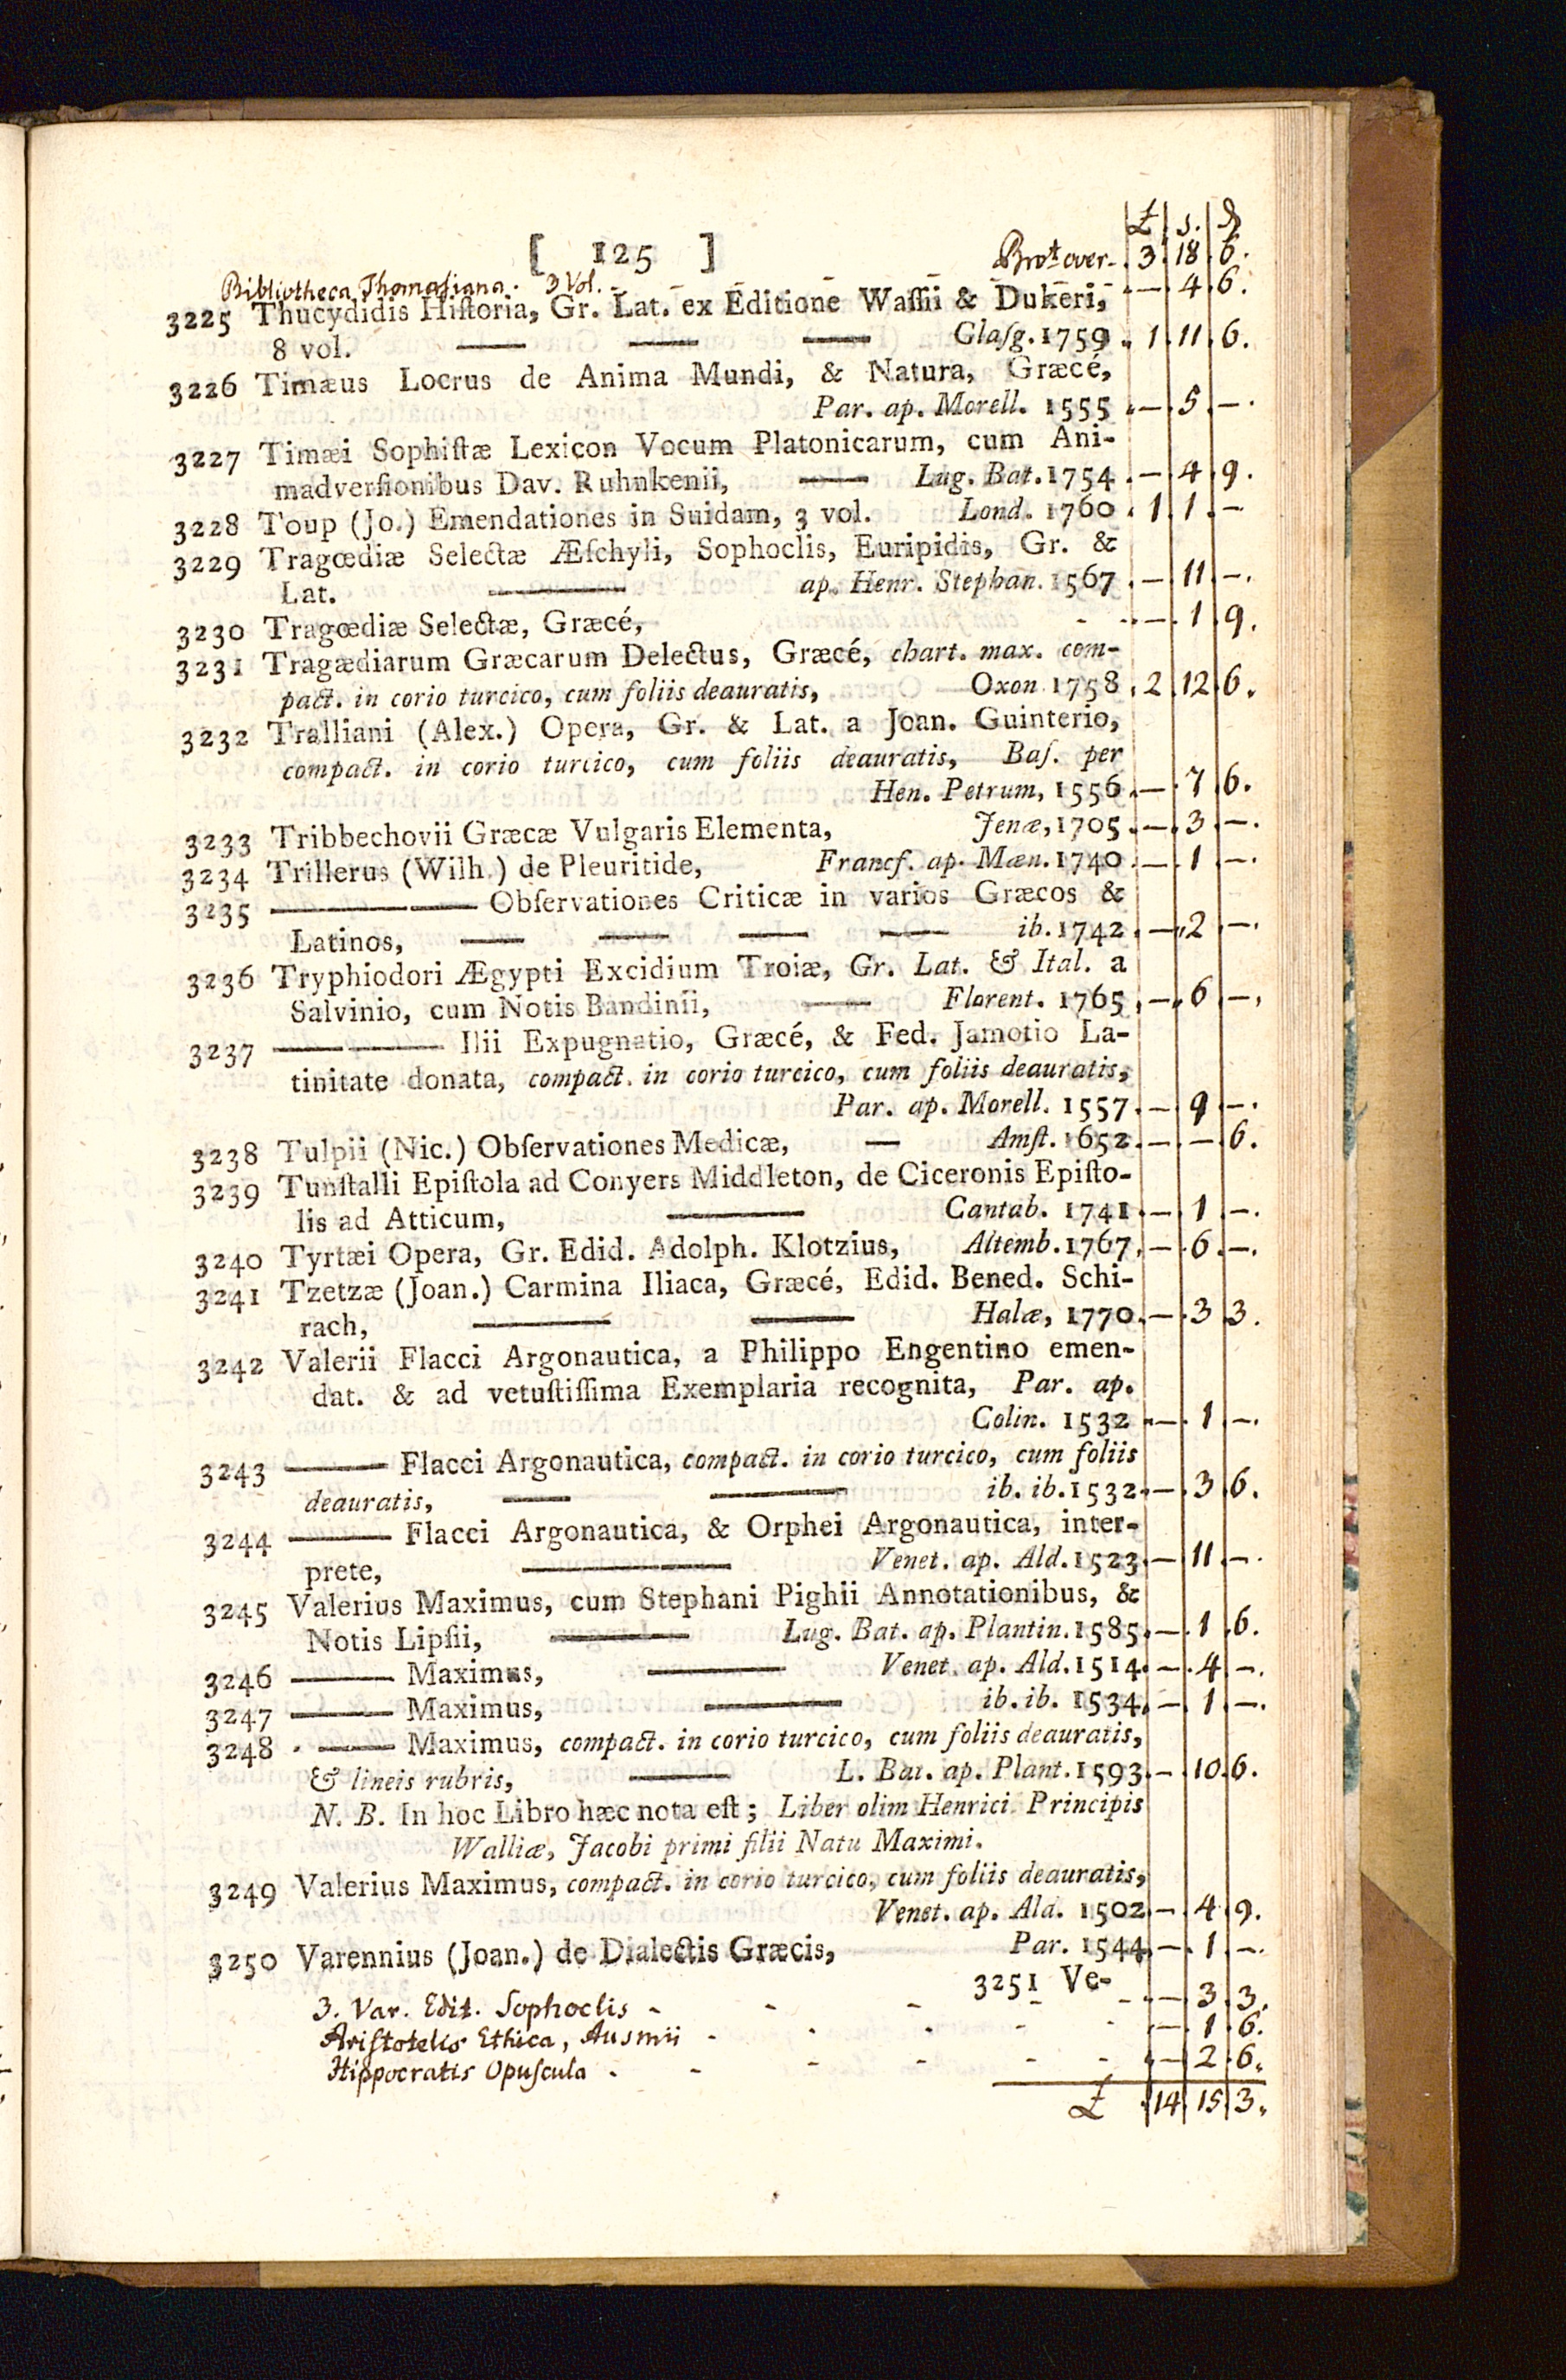 £ s. d
[ 125 ] Brot over - 3 18 6.
Bibliotheca Thomasiana. 3 Vol. - - - - - — 4 6.
3225 Thucydidis Hiſtoria, Gr. Lat. ex Editione Waſſii & Dukeri,
8 vol. — — — Glaſg. 1759 1 11 6.
3226 Timæus Locrus de Anima Mundi, & Natura, Græcé,
Par. ap. Morell. 1555 — 5 —.
3227 Timæi Sophiſtæ Lexicon Vocum Platonicarum, cum Ani-
madverſionibus Dav. Ruhnkenii, — Lug. Bat. 1754 — 4 9.
3228 Toup (Jo.) Emendationes in Suidam, 3 vol. Lond. 1760 1 1 —
3229 Tragœdiæ Selectæ Æſchyli, Sophoclis, Euripidis, Gr. &
Lat. — ap. Henr. Stephan. 1567 — 11 —.
3230 Tragœdiæ Selectæ, Græcé, - - — 1 9.
3231 Tragædiarum Græcarum Delectus, Græcé, chart. max. com-
pact. in corio turcico, cum foliis deauratis, Oxon 1758 2 12 6.
3232 Tralliani (Alex.) Opera, Gr. & Lat. a Joan. Guinterio,
compact. in corio turcico, cum foliis deauratis, Baſ. per
Hen. Petrum, 1556 — 7 6.
3233 Tribbechovii Græcæ Vulgaris Elementa, Jenæ, 1705 — 3 —.
3234 Trillerus (Wilh.) de Pleuritide, Francf. ap. Mæn. 1740 — 1 —.
3235 —— Obſervationes Criticæ in varios Græcos &
Latinos, — — — — ib. 1742 — 2 —.
3236 Tryphiodori Ægypti Excidium Troiæ, Gr. Lat. & Ital. a
Salvinio, cum Notis Bandinii, — Florent. 1765 — 6 —.
3237 —— Ilii Expugnatio, Græcé, & Fed. Jamotio La-
tinitate donata, compact. in corio turcico, cum foliis deauratis,
Par. ap. Morell. 1557 — 9 —.
3238 Tulpii (Nic.) Obſervationes Medicæ, — Amſt. 1652 — — 6.
3239 Tunſtalli Epiſtola ad Conyers Middleton, de Ciceronis Epiſto-
lis ad Atticum, — Cantab. 1741 — 1 —.
3240 Tyrtæi Opera, Gr. Edid. Adolph. Klotzius, Altemb. 1767, — 6 —.
3241 Tzetzæ (Joan.) Carmina Iliaca, Græcé, Edid. Bened. Schi-
rach, — — Halæ, 1770 — 3 3.
3242 Valerii Flacci Argonautica, a Philippo Engentino emen-
dat. & ad vetuſtiſſima Exemplaria recognita, Par. ap.
Colin. 1532 — 1 —.
3243 —— Flacci Argonautica, compact. in corio turcico, cum foliis
deauratis, — — ib. ib. 1532 — 3 6.
3244 —— Flacci Argonautica, & Orphei Argonautica, inter-
prete, — Venet. ap. Ald. 1523 — 11 —.
3245 Valerius Maximus, cum Stephani Pighii Annotationibus, &
Notis Lipſii, — Lug. Bat. ap. Plantin. 1585 — 1 6.
3246 —— Maximus, — Venet. ap. Ald. 1514 — 4 —.
3247 —— Maximus, — ib. ib. 1534 — 1 —.
3248 —— Maximus, compact. in corio turcico, cum foliis deauratis,
& lineis rubris, — L. Bat. ap. Plant. 1593 — 10 6.
N. B. In hoc Libro hæc nota eſt; Liber olim Henrici Principis
Walliæ, Jacobi primi filii Natu Maximi.
3249 Valerius Maximus, compact. in corio turcico, cum foliis deauratis,
Venet. ap. Ald. 1502 — 4 9.
3250 Varennius (Joan.) de Dialectis Græcis, Par. 1544 — 1 —.
3251 Ve-
3. Var. Edit. Sophoclis - - - - - — 3 3.
Ariſtotelis Ethica, Ausmii - - - - - — 1 6.
Hippocratis Opuſcula - - - - - - — 2 6.
£ 14 15 3.